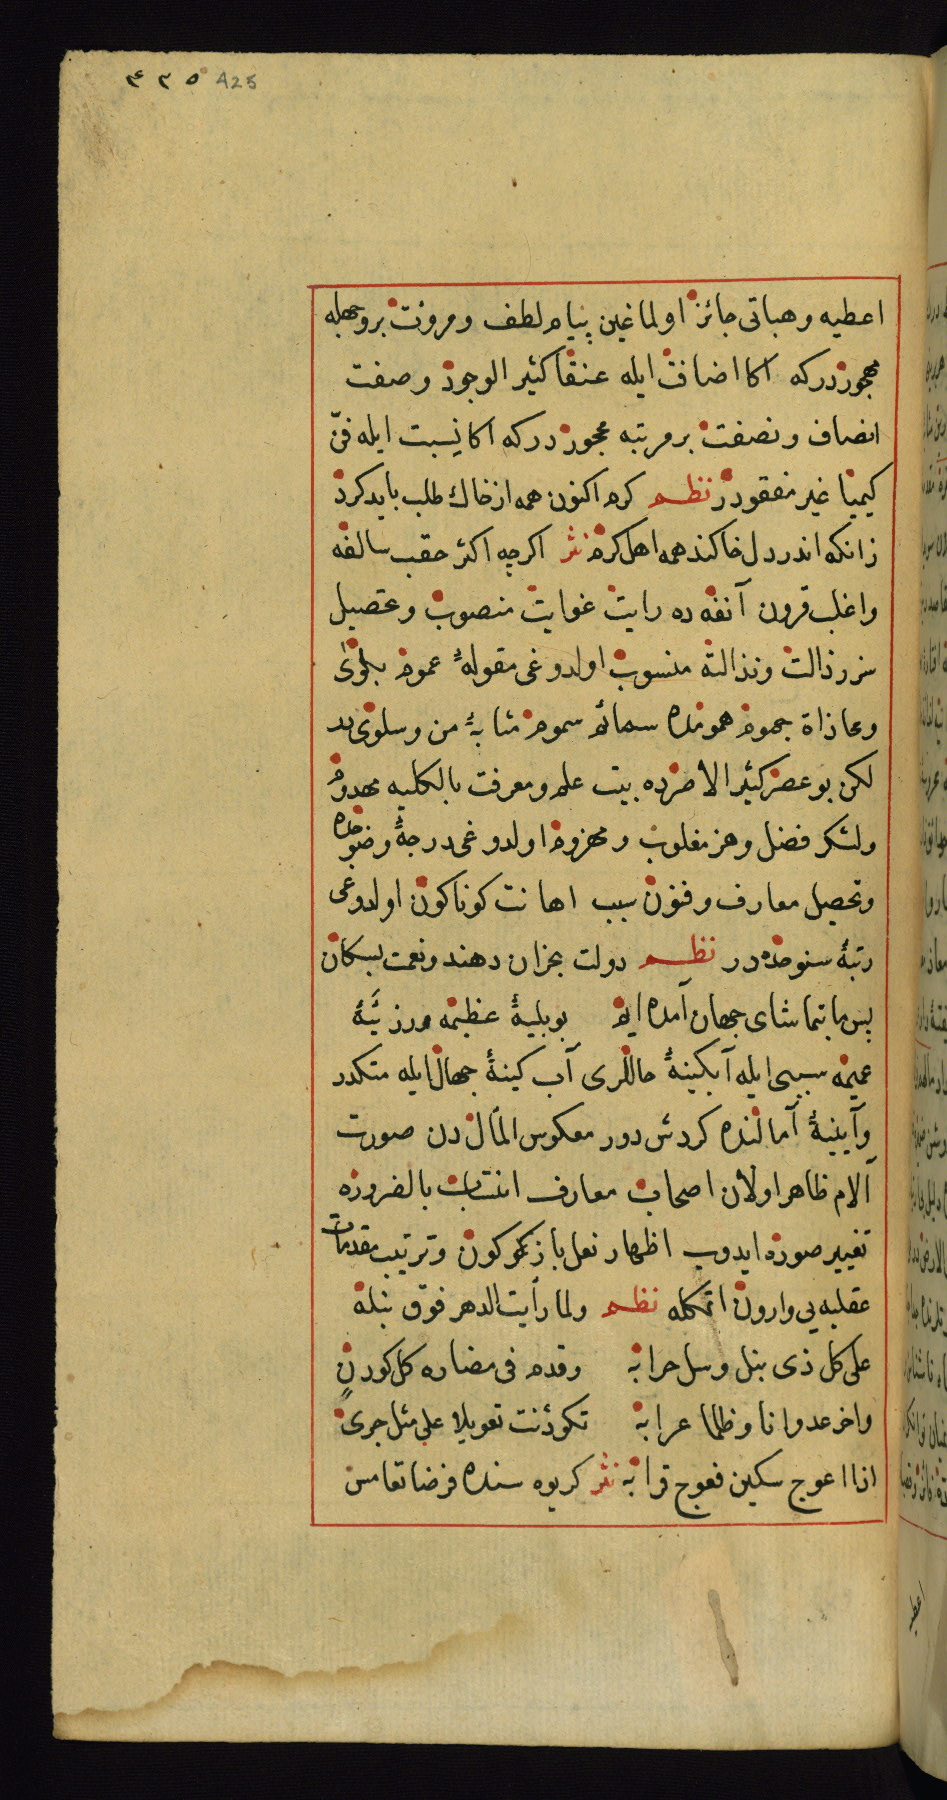 ۴۲۵ 425
اعطیه وهباتی جائز اولماغین پیام لطف ومروت بروجهله
مهجوردرکه اکا اضافت ایله عنقا کثیر الوجود وصفت
انصاف ونصفت برمرتبه مهجور درکه اکا نسبت ایله فنّ
کیمیا غیر مفقوددر نظم کرم اکنون همه از خاك طلب باید کرد
زانکه اندر دل خاکند همه اهل کرم نثر اکرچه اکثر حقب سالفه
واغلب قرون آنفه ده رایت غوایت منصوب وتحصیل
رذالت ونذالته منسوب اولدوغی مقولهٔ عموم بلوی
ومحاذاة هجوم همومده سمائم سموم مثابهٔ من وسلوی در
لکن بو عصر کثیر الاصرده بیت علم ومعرفت بالکلیه مهدوم
ولشکر فضل وهنر مغلوب ومهزوم اولدوغی درجهٔ وضوحده
وتحصیل معارف وفنون سبب اهانت کوناکون اولدوغی
رتبهٔ سنوحده در نظم دولت بخران دهند ونعمت بسکان
پس ما بتماشای جهان آمده ایم بو بلیهٔ عظیمه ورزیّهٔ
عمیمه سببی ایله آبکینهٔ حاللری آب کینهٔ جهال ایله متکدر
وآیینهٔ آمالنده کردش دور معکوس المآلدن صورت
آلام ظاهر اولان اصحاب معارف انتساب بالضروره
تغییر صوره ایدوب اظهار نعل بازکونه کون وترتیب مقدمات
عقلیه یی وارون اتمکله نظم ولما رأیت الدهر فوّق نبله
علی کل ذی نبل وسل حرابه وقدم فی مضماره کل کودن
واخر عدوانا وظلما عرابه تکودنت تعویلا علی مثل جری
اذا اعوج سکین فعوج قرابه نثر کریوه سنده فرضا تقامس
اعطیه